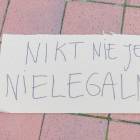 NIKT NIE JE
NIELEGALN